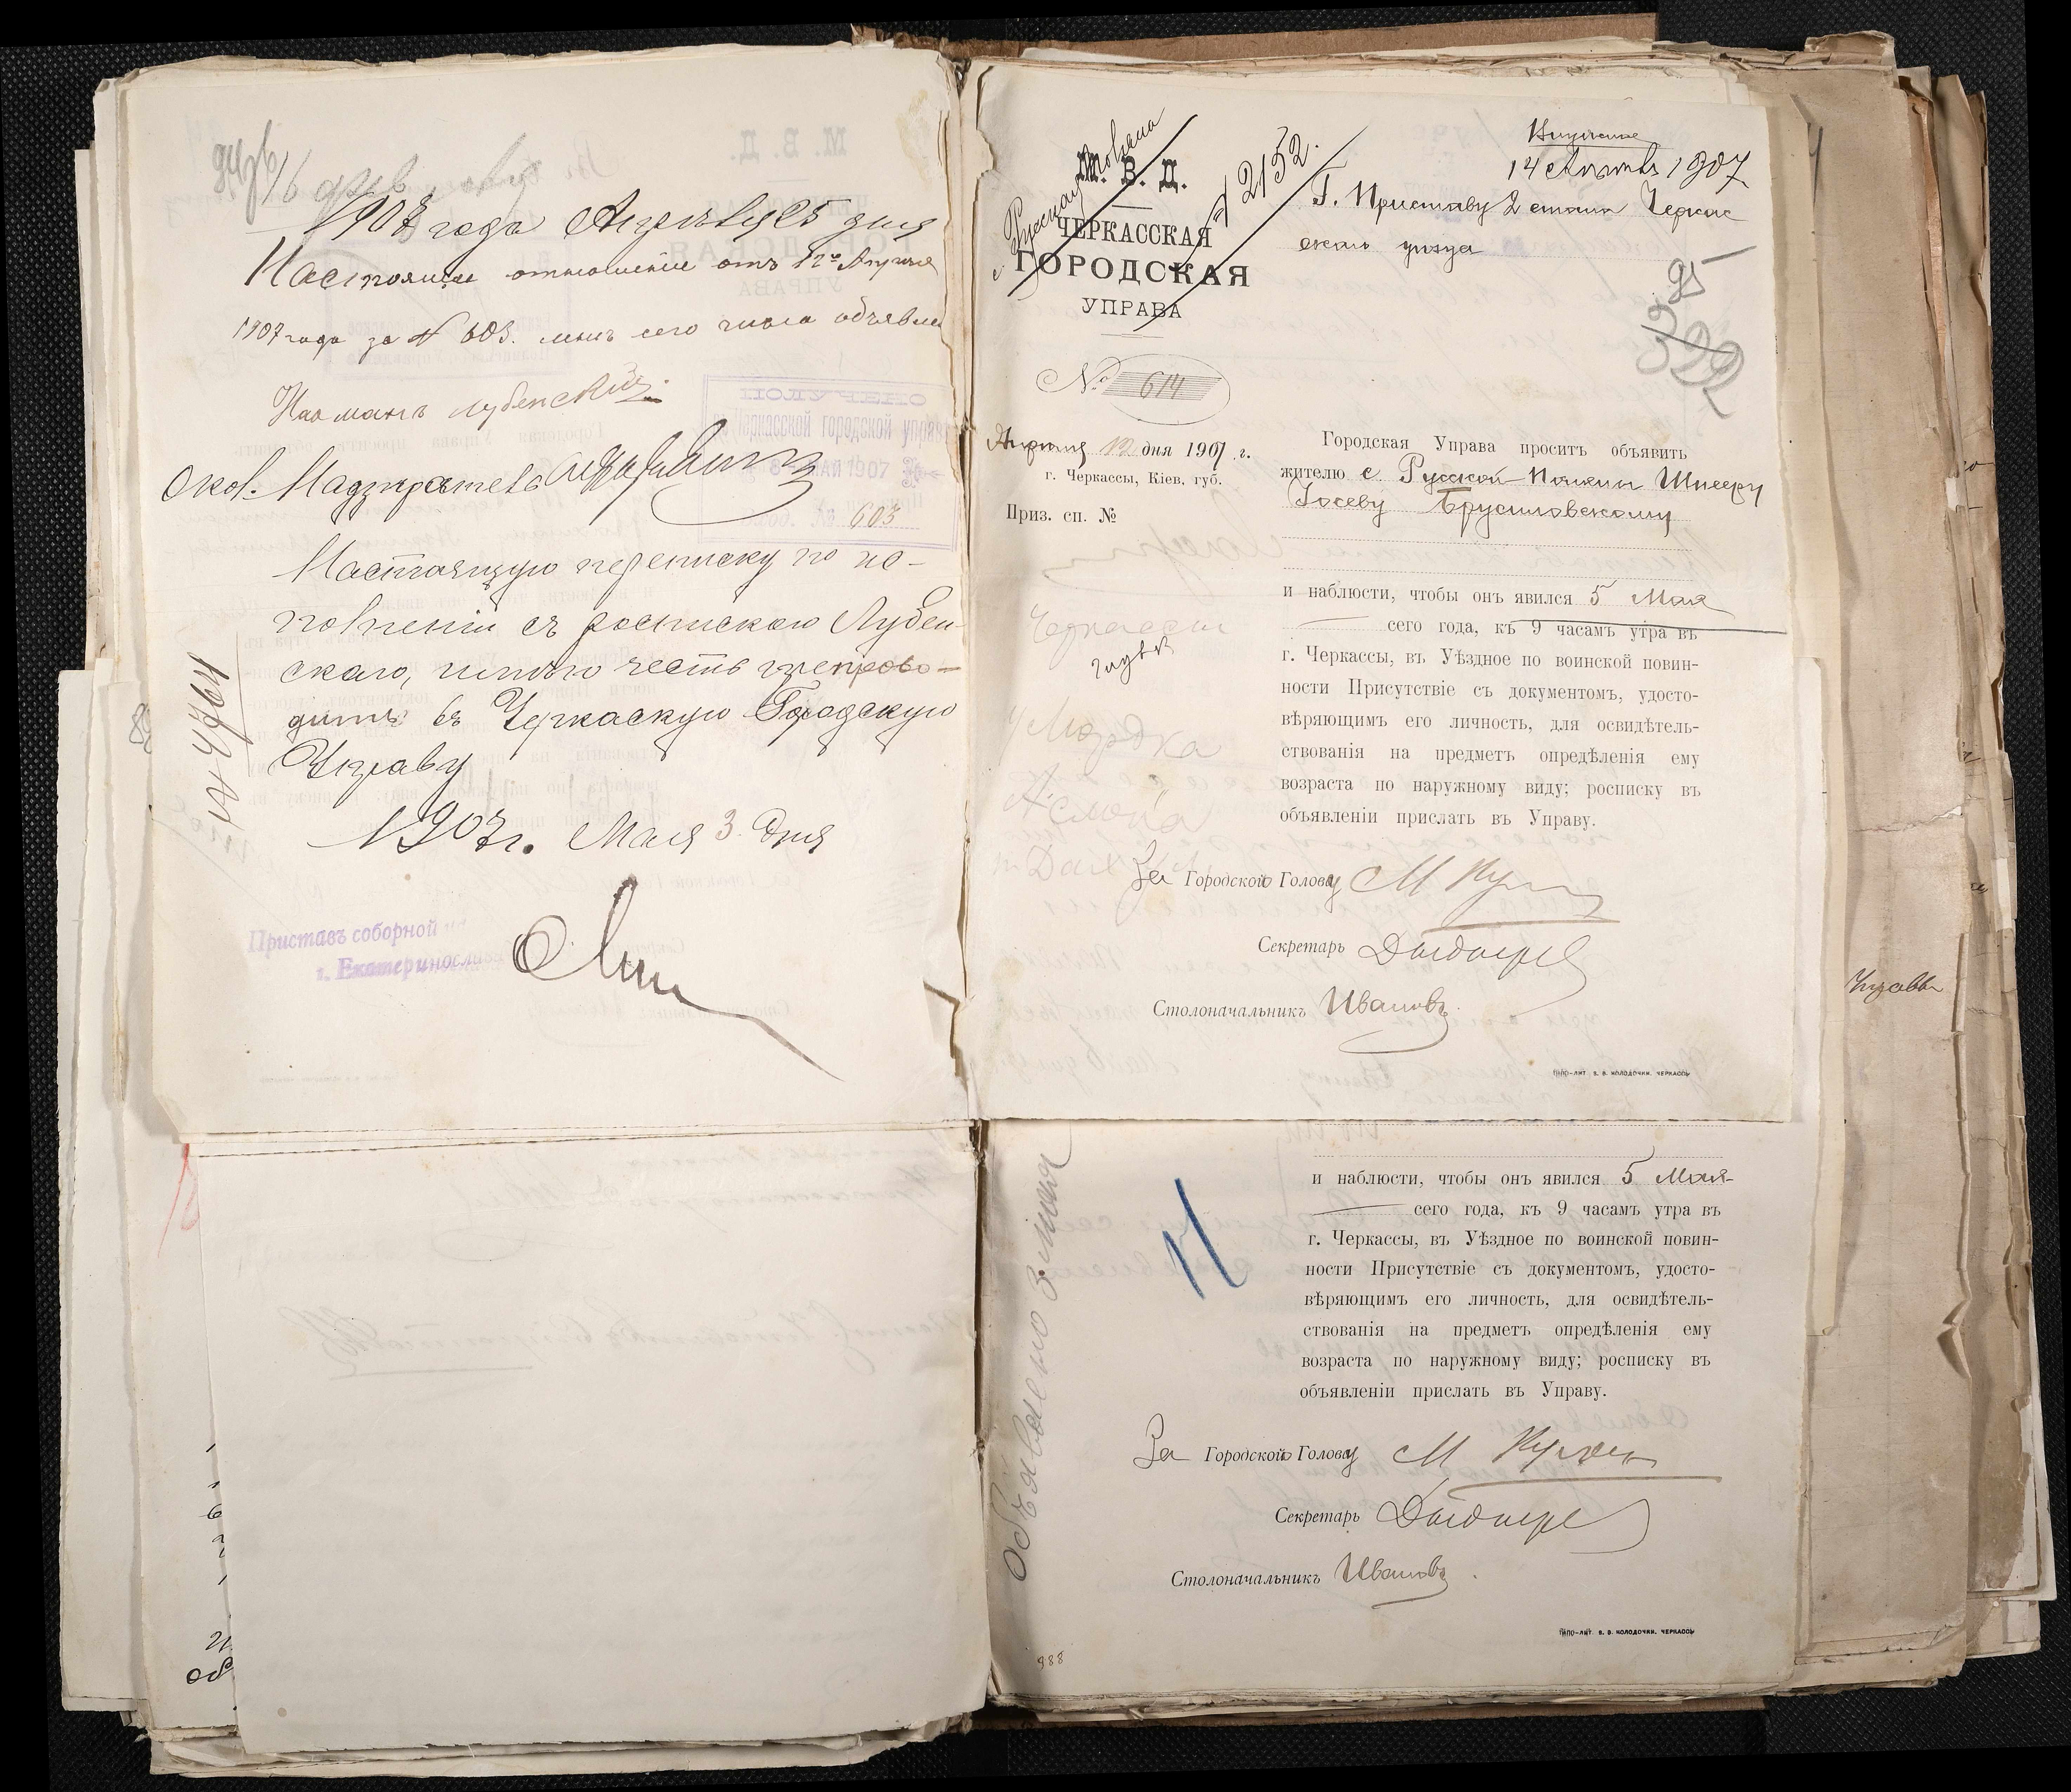 1907 года Апреля 25 дня
Настоящее отношение отъ 12го Апреля
1907 года за № 603. мнѣ сего числа объявлено
Нисманъ Лубенскій
Окол. Надзиратель
Настоящую переписку по ис-
полненіи съ роспискою Лубен-
скаго, имѣю честь препрово-
дить въ Черкаскую Городскую
Управу
1907 г. Мая 3 дня
№ 4764
Приставъ соборной
г. Екатеринослава
ПОЛУЧЕНО
Черкасской городской управ
МАЙ 1907
№ 603
М. В. Д.
ЧЕРКАССКАЯ
ГОРОДСКАЯ
УПРАВА
Русская Поляна
№ 2152.
№ 614
Апреля 12 дня 1907 г.
г. Черкассы, Кіев. губ.
Приз. сп. №
14 1907
Г. Приставу 2 стана Черкас
скаго уѣзда
95
322
Городская Управа проситъ объявить
жителю с Русской-Поляны Шнееру
Іосеву Брусиловскому
и наблюсти, чтобы онъ явился 5 Мая
сего года, къ 9 часамъ утра въ
г. Черкассы, въ Уѣздное по воинской повин-
ности Присутствіе съ документомъ, удосто-
вѣряющимъ его личность, для освидѣтель-
ствованія на предметъ опредѣленія ему
возраста по наружному виду; росписку въ
объявленіи прислать въ Управу.
За Городского Голову М
Секретарь
Столоначальникъ Ивановъ
ТИПО-ЛИТ. В. В. КОЛОДОЧКИ. ЧЕРКАССЫ
Объявлено 3 мая
и наблюсти, чтобы онъ явился 5 Мая
сего года, къ 9 часамъ утра въ
г. Черкассы, въ Уѣздное по воинской повин-
ности Присутствіе съ документомъ, удосто-
вѣряющимъ его личность, для освидѣтель-
ствованія на предметъ опредѣленія ему
возраста по наружному виду; росписку въ
объявленіи прислать въ Управу.
За Городского Голову М
Секретарь
Столоначальникъ Ивановъ
ТИПО-ЛИТ. В. В. КОЛОДОЧКИ. ЧЕРКАССЫ
388